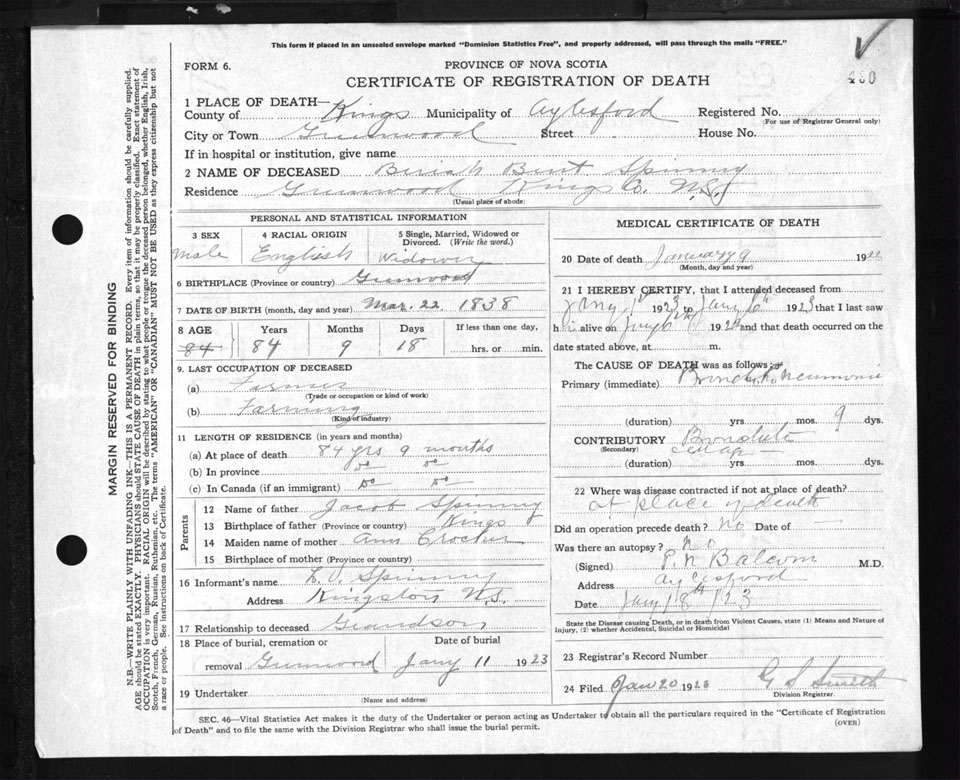 This form if placed in an unsealed envelope marked "Dominion Statistics Free", and properly addressed, will pass through the mails "FREE."
FORM 6.
PROVINCE OF NOVA SCOTIA
CERTIFICATE OF REGISTRATION OF DEATH
1 PLACE OF DEATH—
County of Kings Municipality of Aylesford Registered No.
(For use of Registrar General only)
City or Town Greenwood Street House No.
If in hospital or institution, give name
2 NAME OF DECEASED Beriah Bent Spinney
Residence Greenwood Kings Co. N.S.
(Usual place of abode)
PERSONAL AND STATISTICAL INFORMATION
3 SEX 4 RACIAL ORIGIN 5 Single, Married, Widowed or Divorced. (Write the word.)
Male English Widower
6 BIRTHPLACE (Province or country) Greenwood
7 DATE OF BIRTH (month, day and year) Mar. 22 1838
8 AGE Years Months Days If less than one day,
84 84 9 18 hrs. or min.
9. LAST OCCUPATION OF DECEASED
(a) Farmer
(Trade or occupation or kind of work)
(b) Farming
(Kind of industry)
11 LENGTH OF RESIDENCE (in years and months)
(a) At place of death 84 yrs 9 months
(b) In province do do
(c) In Canada (if an immigrant) do do
Parents
12 Name of father Jacob Spinney
13 Birthplace of father (Province or country) Kings
14 Maiden name of mother Ann Crocker
15 Birthplace of mother (Province or country)
16 Informant's name Spinney
Address Kingston N.S.
17 Relationship to deceased Grandson
18 Place of burial, cremation or removal Greenwood Date of burial Jany 11 1923
19 Undertaker
(Name and address)
MEDICAL CERTIFICATE OF DEATH
20 Date of death January 9 19
(Month, day and year)
21 I HEREBY CERTIFY, that I attended deceased from
Jany 1st 1923 to Jany 6th 1923 that I last saw
h alive on Jany 6th 192 and that death occurred on the
date stated above, at m.
The CAUSE OF DEATH was as follows:
Primary (immediate) Broncho Pneumonia
(duration) yrs. mos. 9 dys.
CONTRIBUTORY Bronchitis
(Secondary) old age
(duration) yrs. mos. dys.
22 Where was disease contracted if not at place of death?
at place of death
Did an operation precede death? No Date of
Was there an autopsy? No
(Signed) P. N. Balcom M.D.
Address Aylesford
Date Jany 18th / 23
State the Disease causing Death, or in death from Violent Causes, state (1) Means and Nature of Injury, (2) whether Accidental, Suicidal or Homicidal
23 Registrar's Record Number
24 Filed Jan 20 1923 G S Smith
Division Registrar.
SEC. 46—Vital Statistics Act makes it the duty of the Undertaker or person acting as Undertaker to obtain all the particulars required in the "Certificate of Registration of Death" and to file the same with the Division Registrar who shall issue the burial permit.
(OVER)
MARGIN RESERVED FOR BINDING
N.B.—WRITE PLAINLY WITH UNFADING INK—THIS IS A PERMANENT RECORD. Every item of information should be carefully supplied.
AGE should be stated EXACTLY. PHYSICIANS should STATE CAUSE OF DEATH in plain terms, so that it may be properly classified. Exact statement of
OCCUPATION is very important. RACIAL ORIGIN will be described by stating to what people or tongue the deceased person belonged, whether English, Irish,
Scotch, French, German, Russian, Ruthenian, etc. The terms "AMERICAN" or "CANADIAN" MUST NOT BE USED as they express citizenship but not
a race or people. See instructions on back of Certificate.